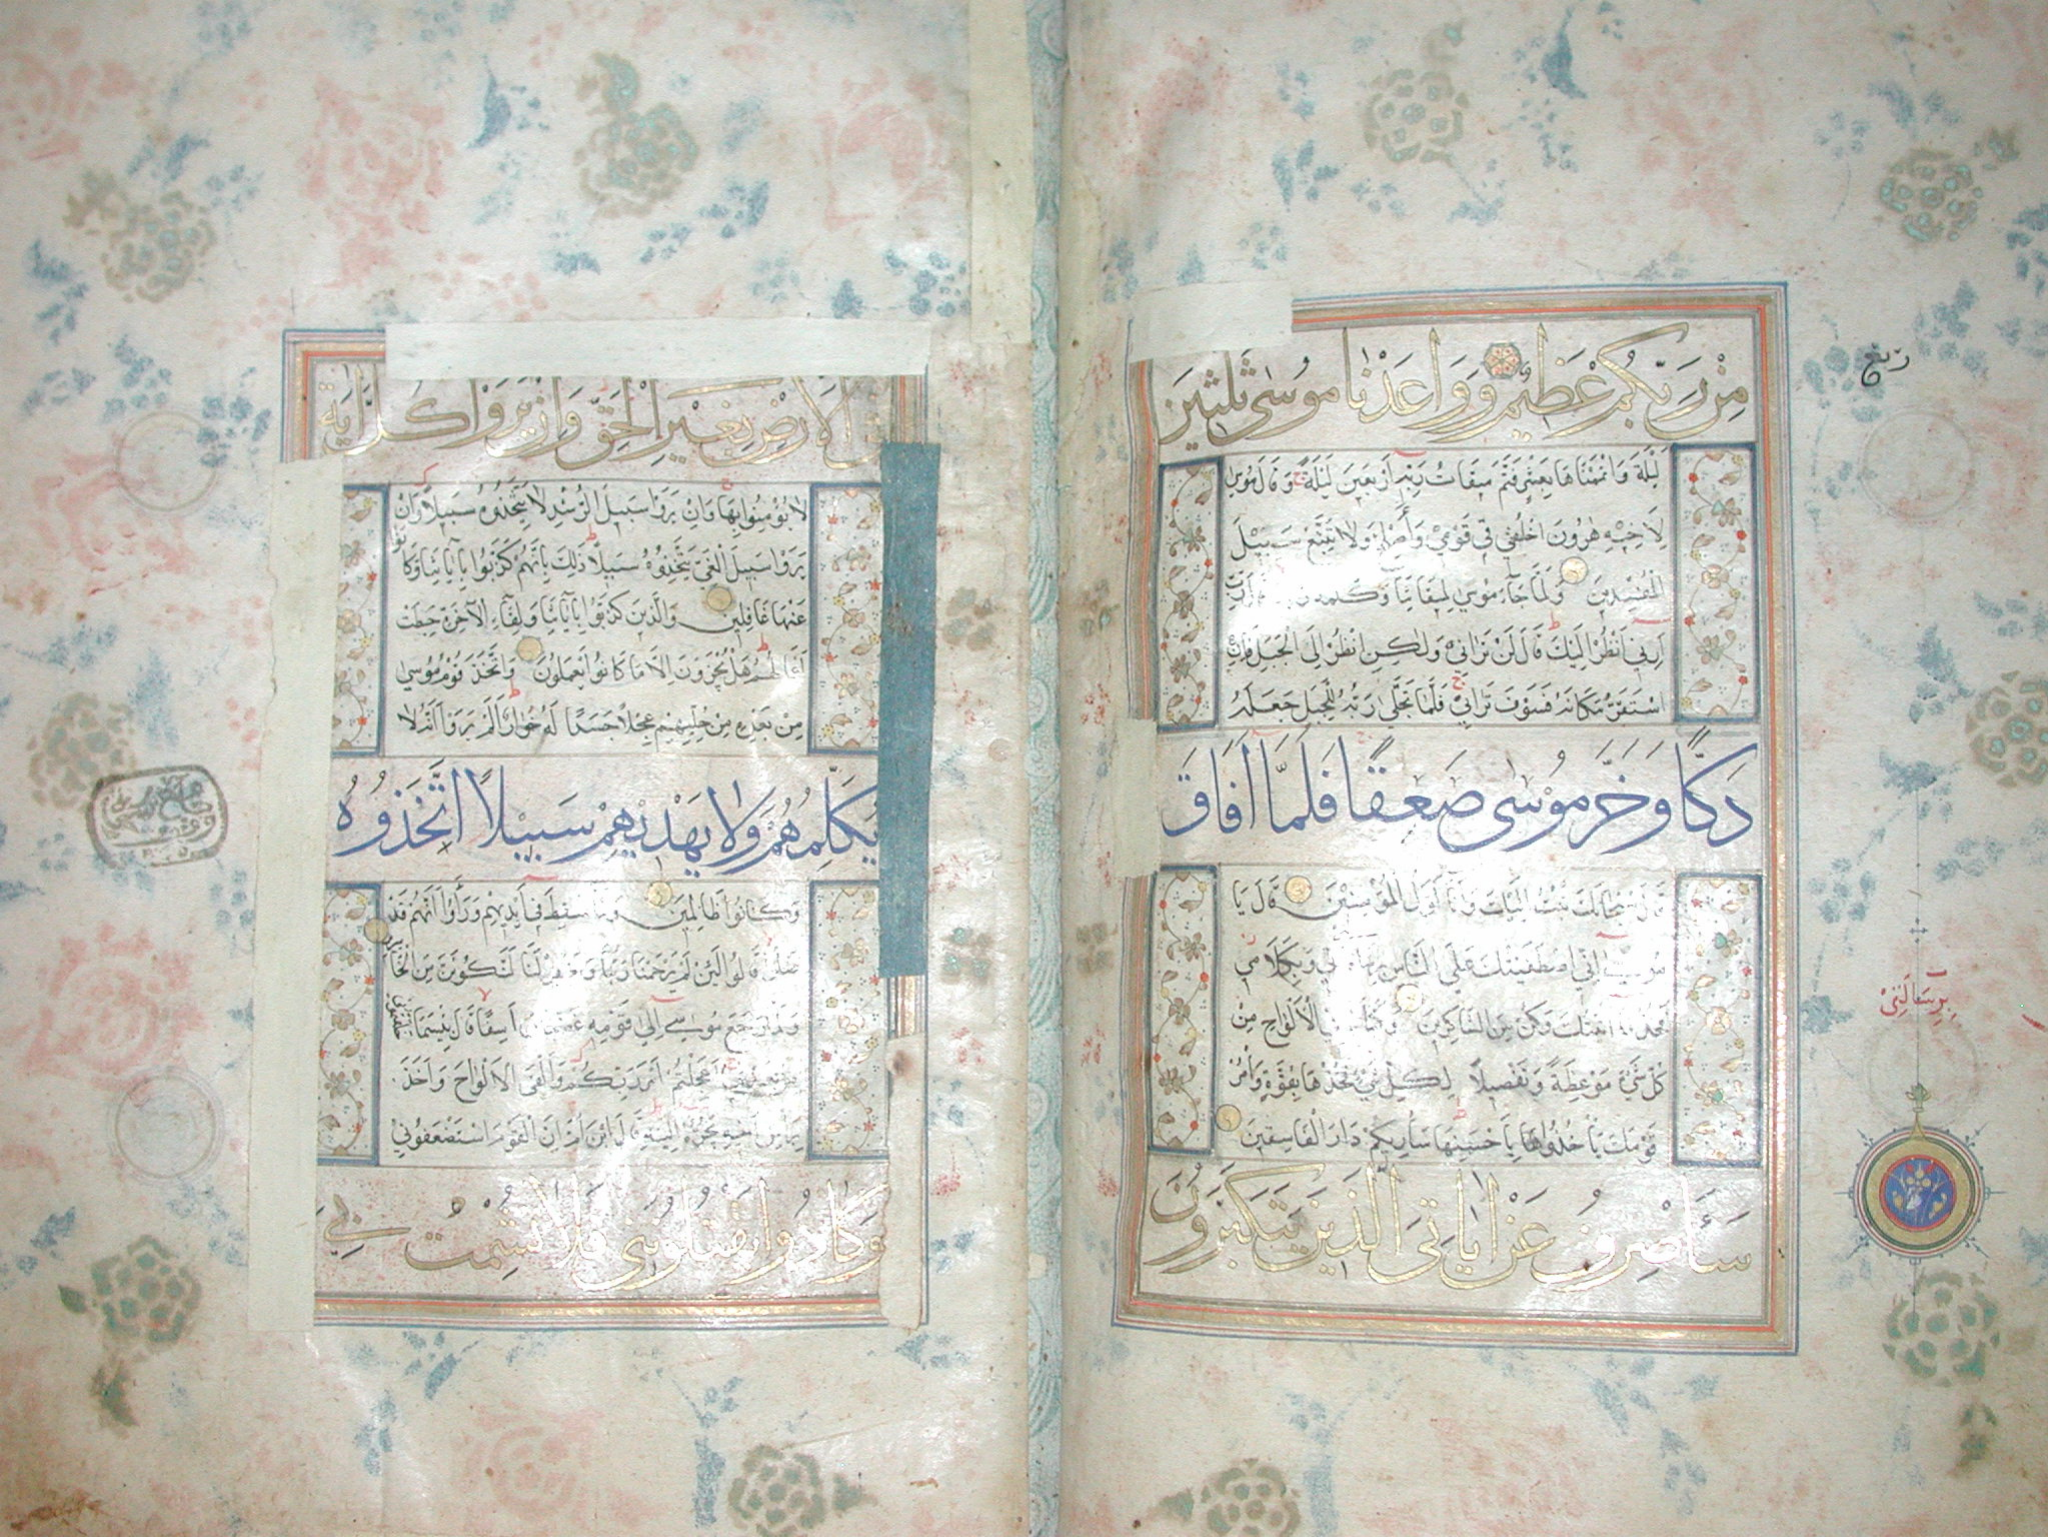 مِنْ رَبِّكُمْ عَظِيمٌ وَوَاعَدْنَا مُوسٰى ثَلٰثِينَ
لَيْلَةً وَاَتْمَمْنَاهَا بِعَشْرٍ فَتَمَّ مِيقَاتُ رَبِّهِ اَرْبَعِينَ لَيْلَةً وَقَالَ مُوسٰى
لِاَخِيهِ هٰرُونَ اخْلُفْنِي فِي قَوْمِي وَأَصْلِحْ وَلَا تَتَّبِعْ سَبِيلَ
الْمُفْسِدِينَ وَلَمَّا جَاءَ مُوسٰى لِمِيقَاتِنَا وَكَلَّمَهُ رَبُّهُ قَالَ رَبِّ
اَرِنِي اَنْظُرْ اِلَيْكَ قَالَ لَنْ تَرَانِي وَلٰكِنِ انْظُرْ اِلَى الْجَبَلِ فَاِنِ
اسْتَقَرَّ مَكَانَهُ فَسَوْفَ تَرَانِي فَلَمَّا تَجَلّٰى رَبُّهُ لِلْجَبَلِ جَعَلَهُ
دَكًّا وَخَرَّ مُوسٰى صَعِقًا فَلَمَّا اَفَاقَ
قَالَ سُبْحَانَكَ تُبْتُ اِلَيْكَ وَاَنَا اَوَّلُ الْمُؤْمِنِينَ قَالَ يَا
مُوسٰى اِنِّي اصْطَفَيْتُكَ عَلَى النَّاسِ بِرِسَالَاتِي وَبِكَلَامِي
فَخُذْ مَا اٰتَيْتُكَ وَكُنْ مِنَ الشَّاكِرِينَ وَكَتَبْنَا لَهُ فِي الْاَلْوَاحِ مِنْ
كُلِّ شَيْءٍ مَوْعِظَةً وَتَفْصِيلًا لِكُلِّ شَيْءٍ فَخُذْهَا بِقُوَّةٍ وَأْمُرْ
قَوْمَكَ يَأْخُذُوا بِاَحْسَنِهَا سَاُرِيكُمْ دَارَ الْفَاسِقِينَ
سَأَصْرِفُ عَنْ اٰيَاتِيَ الَّذِينَ يَتَكَبَّرُونَ
ربع
بِرِسَالَتِي
الْاَرْضِ بِغَيْرِ الْحَقِّ وَاِنْ يَرَوْا كُلَّ اٰيَةٍ
لَا يُؤْمِنُوا بِهَا وَاِنْ يَرَوْا سَبِيلَ الرُّشْدِ لَا يَتَّخِذُوهُ سَبِيلًا وَاِنْ
يَرَوْا سَبِيلَ الْغَيِّ يَتَّخِذُوهُ سَبِيلًا ذٰلِكَ بِاَنَّهُمْ كَذَّبُوا بِاٰيَاتِنَا وَكَانُوا
عَنْهَا غَافِلِينَ وَالَّذِينَ كَذَّبُوا بِاٰيَاتِنَا وَلِقَاءِ الْاٰخِرَةِ حَبِطَتْ
اَعْمَالُهُمْ هَلْ يُجْزَوْنَ اِلَّا مَا كَانُوا يَعْمَلُونَ وَاتَّخَذَ قَوْمُ مُوسٰى
مِنْ بَعْدِهِ مِنْ حُلِيِّهِمْ عِجْلًا جَسَدًا لَهُ خُوَارٌ اَلَمْ يَرَوْا اَنَّهُ لَا
يُكَلِّمُهُمْ وَلَا يَهْدِيهِمْ سَبِيلًا اتَّخَذُوهُ
وَكَانُوا ظَالِمِينَ وَلَمَّا سُقِطَ فِي اَيْدِيهِمْ وَرَأَوْا اَنَّهُمْ قَدْ
ضَلُّوا قَالُوا لَئِنْ لَمْ يَرْحَمْنَا رَبُّنَا وَيَغْفِرْ لَنَا لَنَكُونَنَّ مِنَ الْخَاسِرِينَ
وَلَمَّا رَجَعَ مُوسٰى اِلٰى قَوْمِهِ غَضْبَانَ اَسِفًا قَالَ بِئْسَمَا خَلَفْتُمُونِي
مِنْ بَعْدِي اَعَجِلْتُمْ اَمْرَ رَبِّكُمْ وَاَلْقَى الْاَلْوَاحَ وَاَخَذَ
بِرَأْسِ اَخِيهِ يَجُرُّهُ اِلَيْهِ قَالَ ابْنَ اُمَّ اِنَّ الْقَوْمَ اسْتَضْعَفُونِي
وَكَادُوا يَقْتُلُونَنِي فَلَا تُشْمِتْ بِيَ